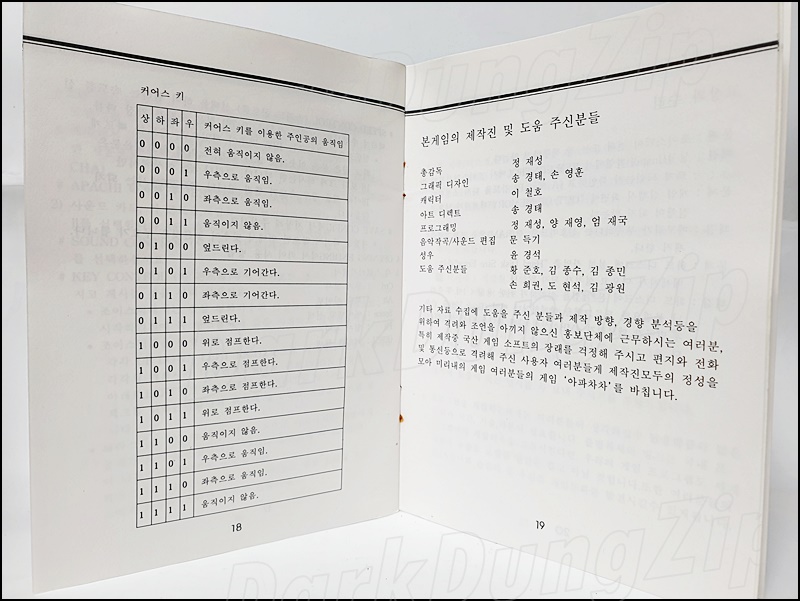 커어스 키
상 하 좌 우 커어스 키를 이용한 주인공의 움직임
0 0 0 0 전혀 움직이지 않음.
0 0 0 1 우측으로 움직임.
0 0 1 0 좌측으로 움직임.
0 0 1 1 움직이지 않음.
0 1 0 0 엎드린다.
0 1 0 1 우측으로 기어간다.
0 1 1 0 좌측으로 기어간다.
0 1 1 1 엎드린다.
1 0 0 0 위로 점프한다.
1 0 0 1 우측으로 점프한다.
1 0 1 0 좌측으로 점프한다.
1 0 1 1 위로 점프한다.
1 1 0 0 움직이지 않음.
1 1 0 1 우측으로 움직임.
1 1 1 0 좌측으로 움직임.
1 1 1 1 움직이지 않음.
18
본게임의 제작진 및 도움 주신분들
총감독 정 재성
그래픽 디자인 송 경태, 손 영훈
캐릭터 이 철호
아트 디렉트 송 경태
프로그래밍 정 재성, 양 재영, 엄 재국
음악작곡/사운드 편집 문 득기
성우 윤 경석
도움 주신분들 황 준호, 김 종수, 김 종민
손 희권, 도 현석, 김 광원
기타 자료 수집에 도움을 주신 분들과 제작 방향, 경향 분석등을
위하여 격려와 조언을 아끼지 않으신 홍보단체에 근무하시는 여러분,
특히 제작중 국산 게임 소프트의 장래를 걱정해 주시고 편지와 전화
및 통신등으로 격려해 주신 사용자 여러분들게 제작진모두의 정성을
모아 미리내의 게임 여러분들의 게임 ‘아파차차’를 바칩니다.
19
DarkDungZip
DarkDungZip
DarkDungZip